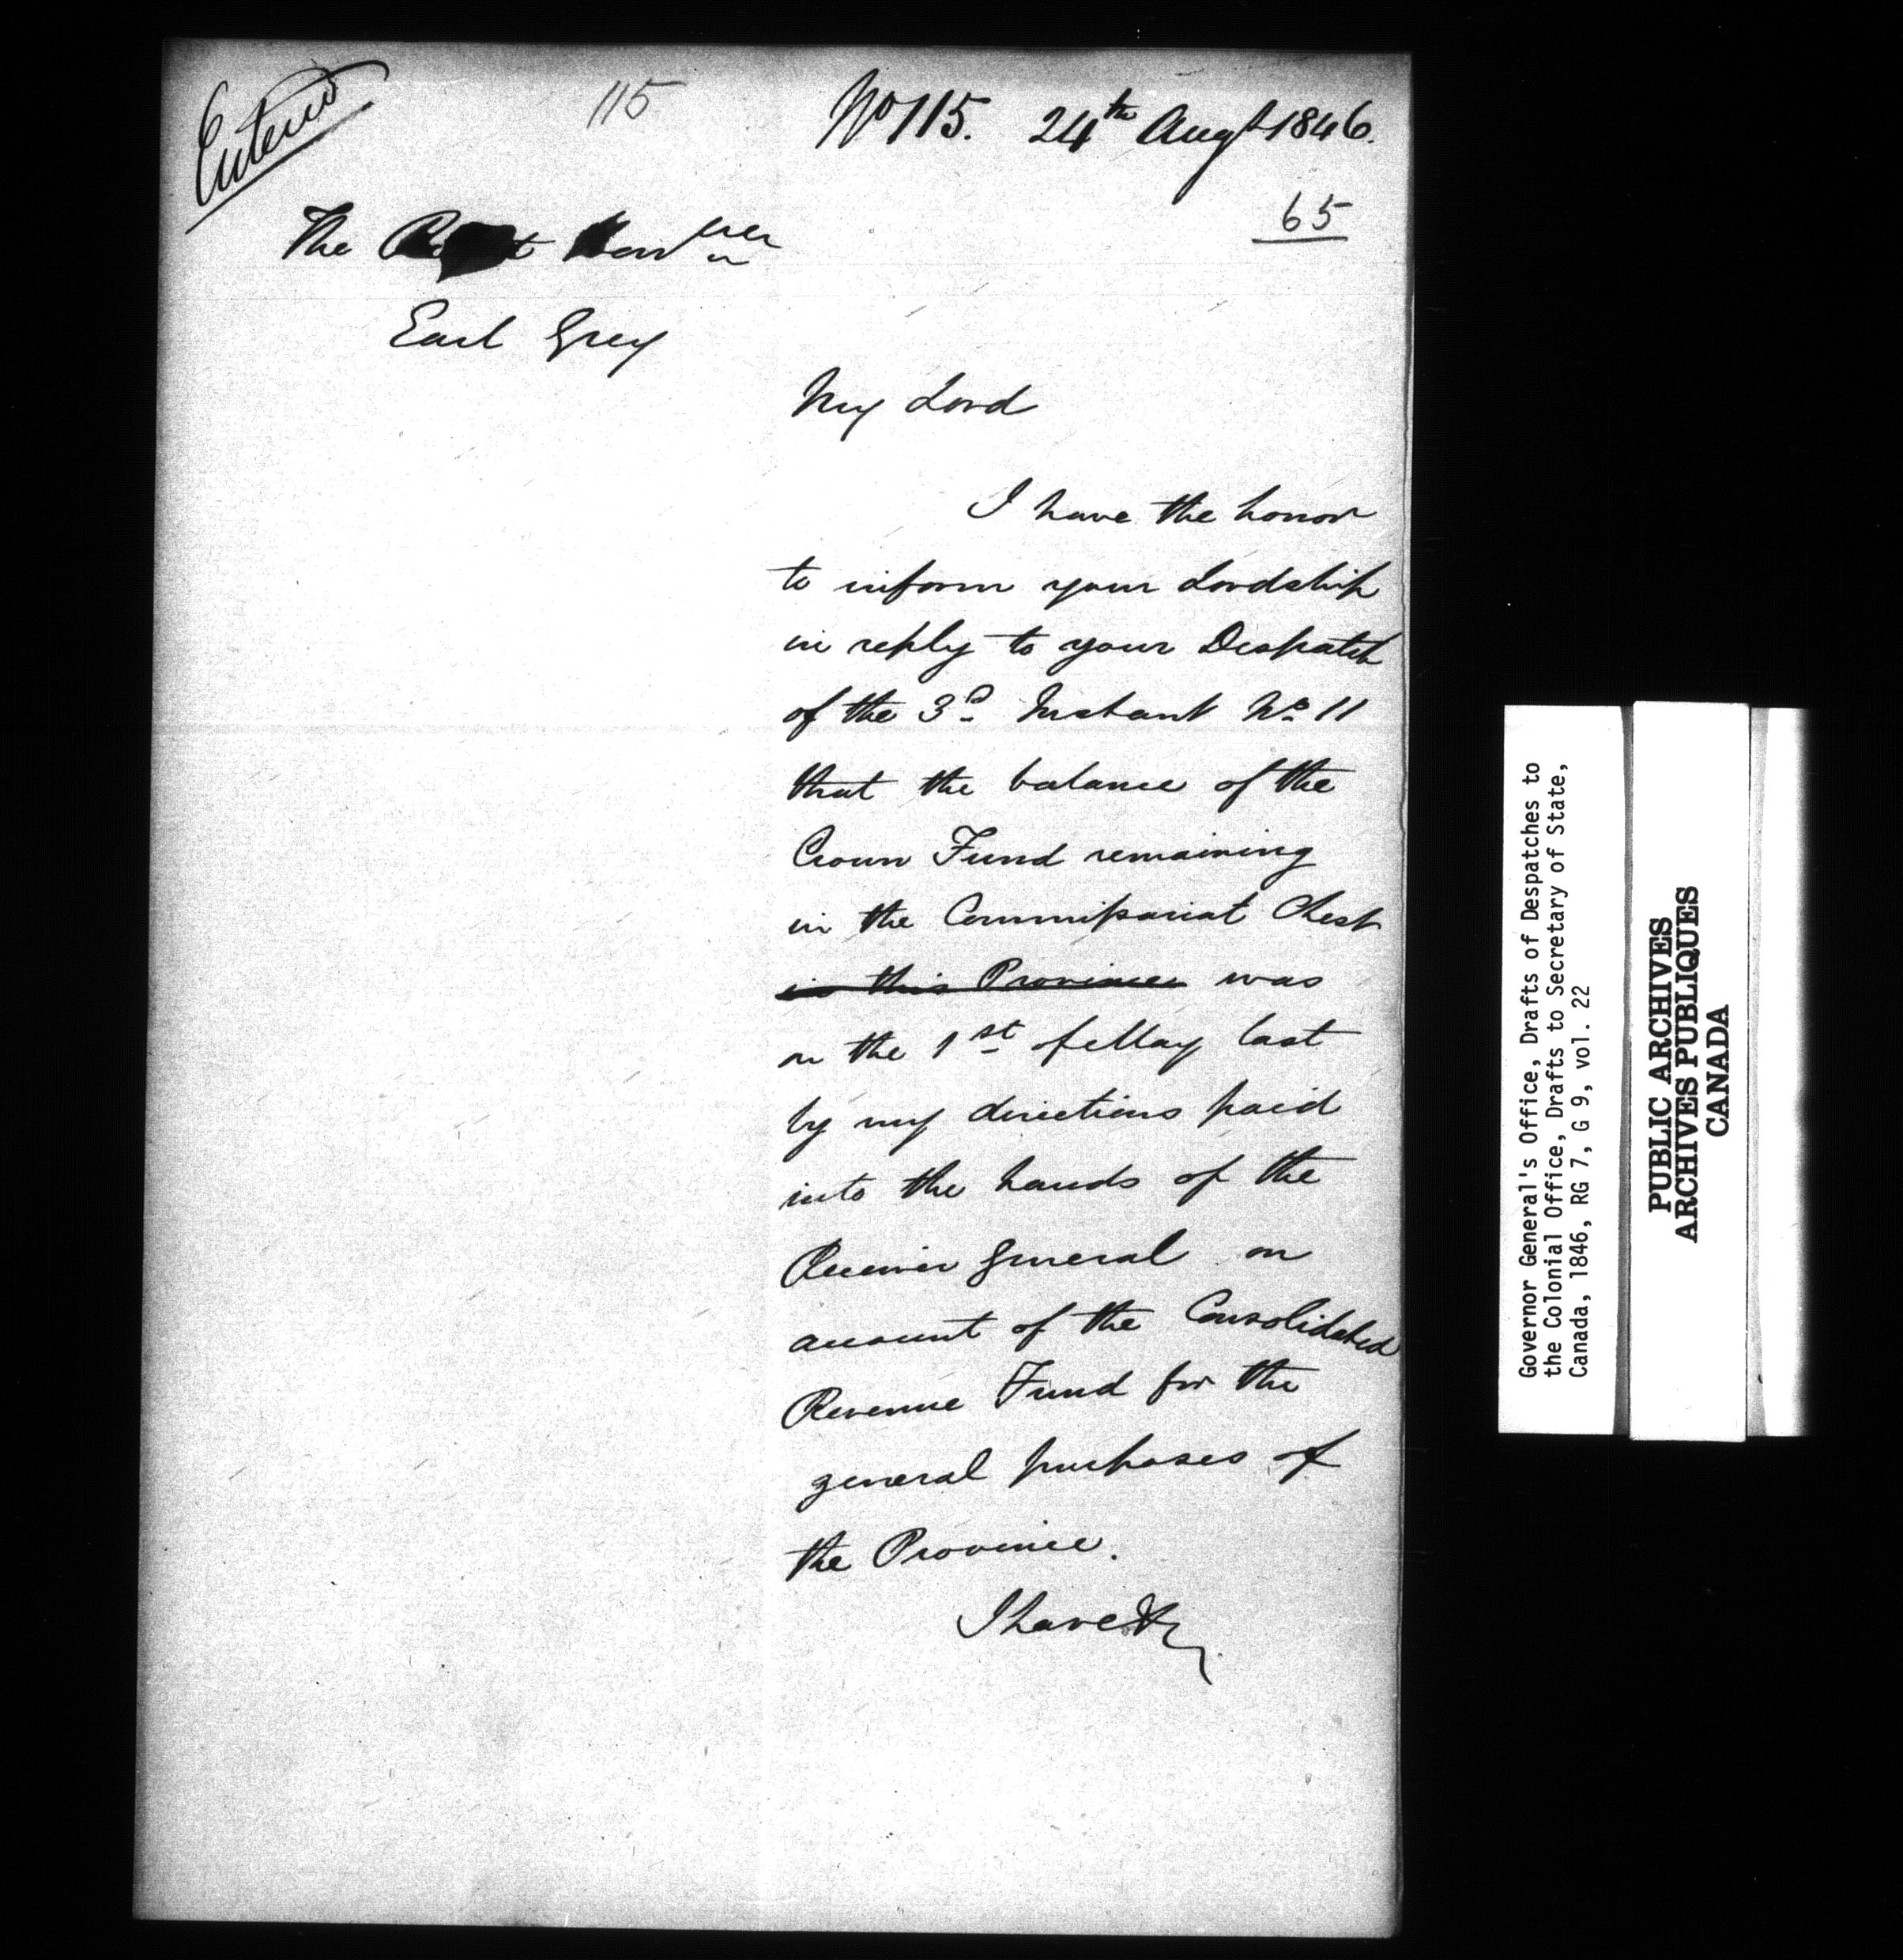 Entered
115
No 115. 24th Augt 1846.
65
The Right Honble
Earl Grey
My Lord
I have the honor
to inform your Lordship
in reply to your Despatch
of the 3d Instant No 11
that the balance of the
Crown Fund remaining
in the Commissariat Chest
in this Province was
on the 1st of May last
by my directions paid
into the hands of the
Receiver General on
account of the Consolidated
Revenue Fund for the
general purposes of
the Province.
I have &c
Governor General's Office, Drafts of Despatches to
the Colonial Office, Drafts to Secretary of State,
Canada, 1846, RG 7, G 9, vol. 22
PUBLIC ARCHIVES
ARCHIVES PUBLIQUES
CANADA